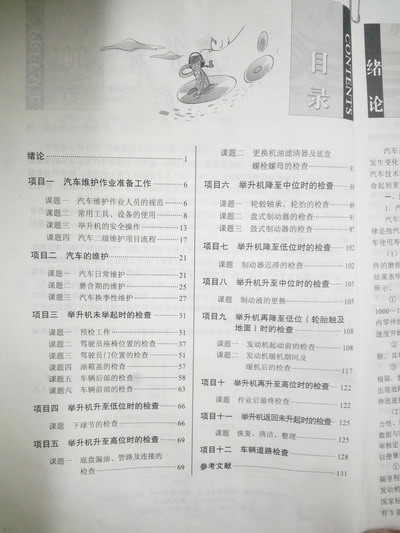 目录
CONTENTS
绪论 1
项目一 汽车维护作业准备工作 6
课题一 汽车维护作业人员的规范 6
课题二 常用工具、设备的使用 8
课题三 举升机的安全操作 13
课题四 汽车二级维护项目流程 17
项目二 汽车的维护 21
课题一 汽车日常维护 21
课题二 磨合期的维护 25
课题三 汽车换季性维护 27
项目三 举升机未举起时的检查 31
课题一 预检工作 31
课题二 驾驶员座椅位置的检查 37
课题三 驾驶员门位置的检查 51
课题四 油箱盖的检查 57
课题五 车辆后部的检查 58
课题六 车辆前部的检查 63
项目四 举升机升至低位时的检查 66
课题 下球节的检查 66
项目五 举升机升至高位时的检查 69
课题一 底盘漏油、管路及连接的
检查 69
课题二 更换机油滤清器及底盘
螺栓螺母的检查
项目六 举升机降至中位时的检查
课题一 轮毂轴承、轮胎的检查
课题二 盘式制动器的检查
课题三 鼓式制动器的检查
项目七 举升机降至低位时的检查 102
课题 制动器迟滞的检查 102
项目八 举升机升至中位时的检查 105
课题 制动液的更换 105
项目九 举升机再降至低位（轮胎触及
地面）时的检查 108
课题一 发动机起动前的检查 108
课题二 发动机暖机期间及
暖机后的检查 117
项目十 举升机再升至高位时的检查 122
课题 作业后最终检查 122
项目十一 举升机返回未升起时的检查 125
课题 恢复、清洁、整理 125
项目十二 车辆道路检查 128
参考文献 131
绪论